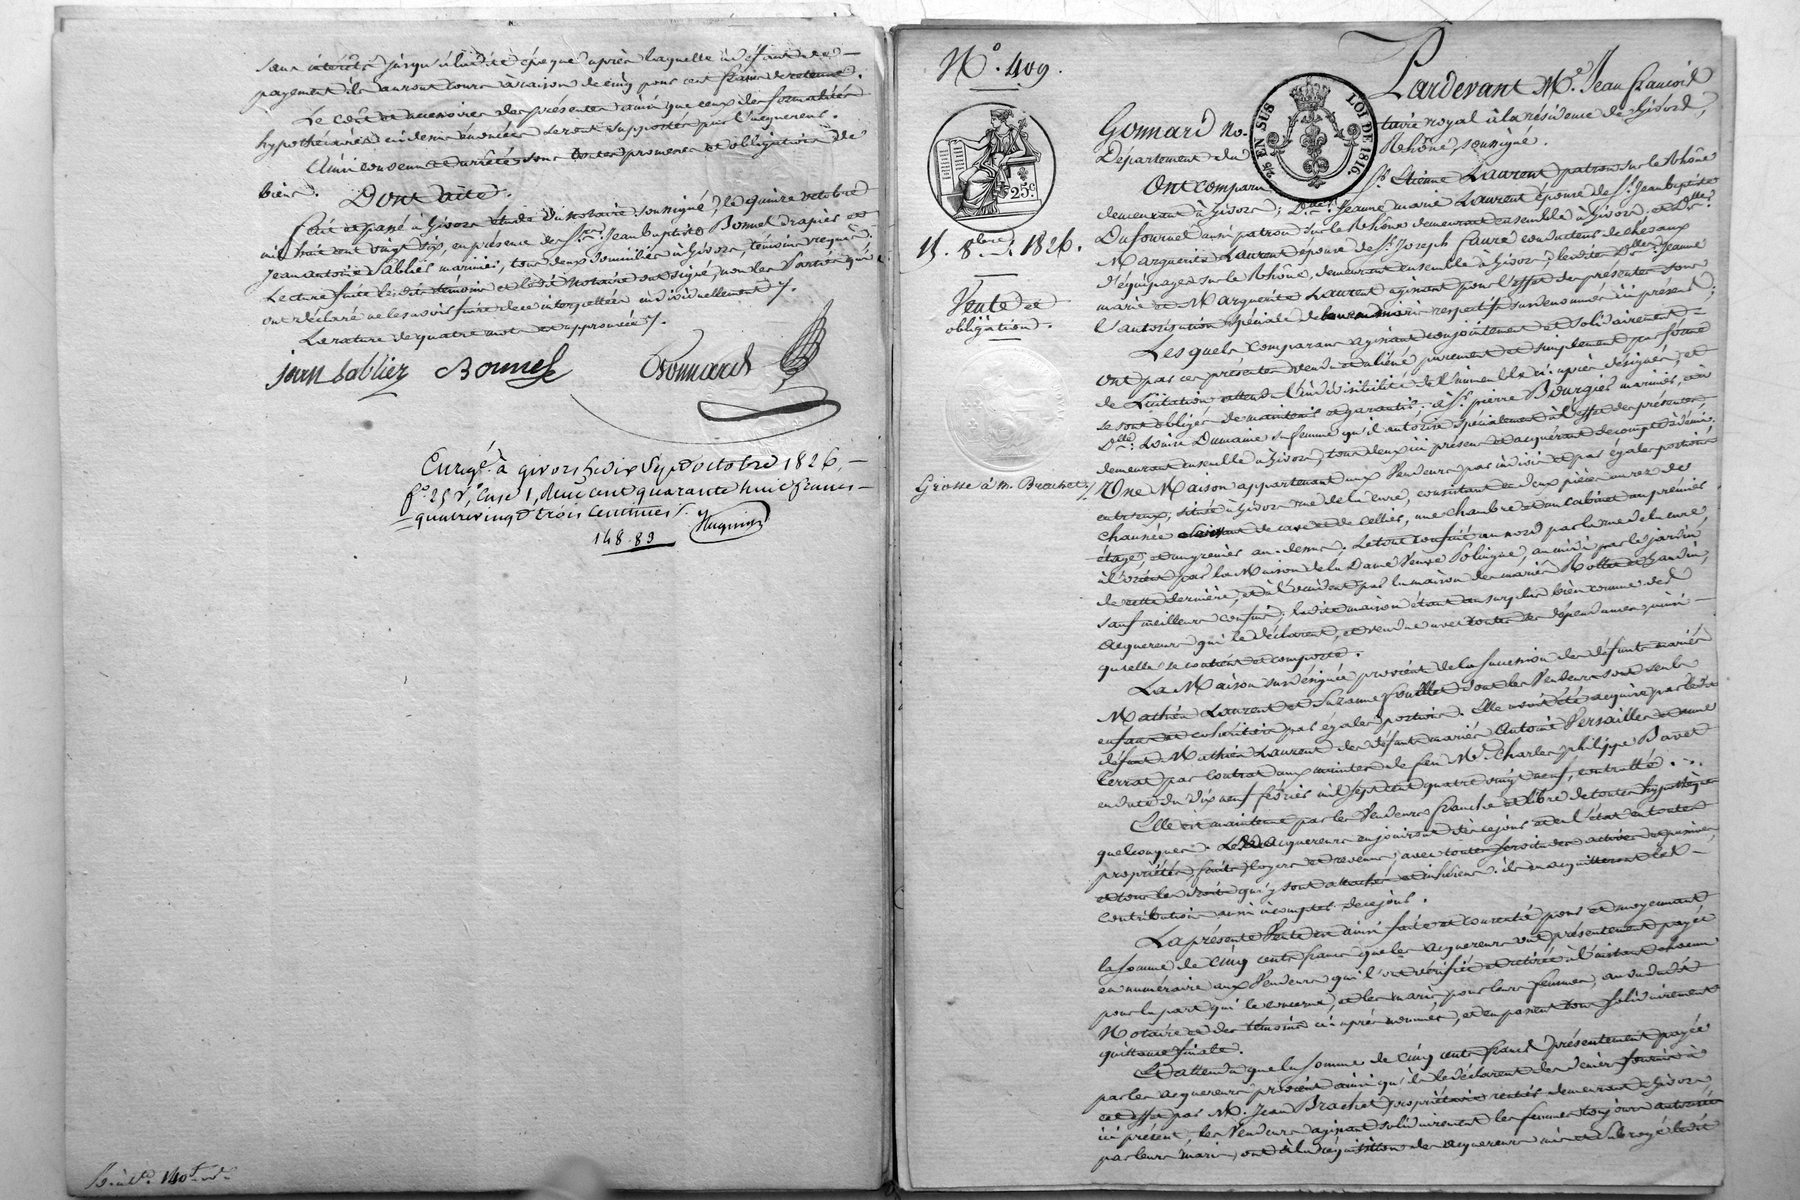 sans intérêts jusqu'à ladite époque après laquelle à défaut de
payement ils auront cours à raison de cinq pour cent francs de retenue.
Le coût et accessoires des présentes ainsi que ceux des formalités
hypothécaires seront supportés par l'acquéreur.
Ainsi convenu et arrêté sous toutes promesses et obligations de
biens. Dont acte.
Fait et passé à Givors étude du notaire soussigné, le quinze octobre
mil huit cent vingt six, en présence de Srs. Jean Baptiste Bonnel drapier et
Jean Antoine Sablier marinier, tous deux domiciliés à Givors, témoins requis.
Lecture faite lesdits témoins et ledit notaire ont signé, non les Parties qui
ont déclaré ne le savoir faire de ce interpellées individuellement.
La rature de quatre mots est approuvée.
jean Sablier Bonnel Gonnard
Enregé. à givors le dix Sept octobre 1826,
fo. 25 Vo. Case 1, Reçu cent quarante huit francs
quatrevingt trois Centimes. Huguin
148.83
No. 409.
EN SUS LOI DE 1816.
25c.
15. 8bre. 1826.
Vente et
obligation.
Grosse à M. Brachet
Pardevant Me. Jean François
Gonnard no- taire royal à la résidence de Givors,
Département du Rhône, soussigné.
Ont comparu Sr. Etienne Laurent patron sur le Rhône
demeurant à Givors; Dme. Jeanne marie Laurent épouse de Sr. Jean Baptiste
Dufournel aussi patron sur le Rhône demeurant ensemble à Givors; et Dme.
Marguerite Laurent épouse de Sr. Joseph Faure conducteur de chevaux
d'équipages sur le Rhône, demeurant ensemble à Givors; lesdites Dmes. Jeanne
marie et Marguerite Laurent agissant pour l'effet des présentes sous
l'autorisation spéciale de leurs maris respectifs susdénommés ici présents;
Lesquels comparans agissant conjointement et solidairement
ont par ces présentes vendu et aliéné purement et simplement par forme
de licitation attendu l'indivisibilité de l'immeuble ci-après désigné, et
se sont obligés de maintenir et garantir, à Sr. pierre Bourgier marinier, et à
Dme. Louise Dumaine sa femme qu'il autorise spécialement à l'effet des présentes
demeurant ensemble à Givors, tous deux ici présens et acquérant de compte à demi.
Une Maison appartenant aux Vendeurs par indivis et par égales portions
entr'eux, située à Givors rue de la cure, consistant en deux pièces au rez de
chaussée servant de cave et de cellier, une chambre et un cabinet au premier
étage, et un grenier au-dessus. Le tout confiné au nord par la rue de la cure
à l'orient par la Maison de la Dame Veuve Solingue, au midi par les jardins
de cette dernière, et à l'occident par la maison des mariés Rollet et Jandin,
sauf meilleurs confins; ladite maison étant au surplus bien connue des
acquéreurs qui le déclarent, et vendue avec toutes ses dépendances ainsi
qu'elle se contient et comporte.
La Maison susdésignée provient de la succession des défunts mariés
Mathieu Laurent et Suzanne fouillet dont les Vendeurs sont seuls
enfans et cohéritiers par égales portions. Elle avait été acquise par ledit
défunt Mathieu Laurent des défunts mariés Antoine Versailles et anne
Terrat par contrat aux minutes de feu Me. Charles philippe Bavet
en date du dix neuf février mil sept cent quatre vingt neuf, contrôlé.
Elle est maintenue par les Vendeurs franche et libre de toutes hypothèques
quelconques. Les acquéreurs en jouiront dès ce jour et en l'état en toute
propriété, fruits, loyers et revenus, avec toutes servitudes actives et passives
et tous les droits qui y sont attachés et inhérens. ils en acquitteront les
contributions aussi à compter de ce jour.
La présente Vente est ainsi faite et consentie pour et moyennant
la somme de cinq cents francs que les acquéreurs ont présentement payée
en numéraire aux Vendeurs qui l'ont vérifiée et retirée à l'instant chacun
pour la part qui le concerne, et les maris pour leurs femmes, au vu dudit
Notaire et des témoins ci-après nommés, et en passent tous solidairement
quittance finale.
Et attendu que la somme de cinq cents francs présentement payée
par les acquéreurs provient ainsi qu'ils le déclarent des deniers fournis à
cet effet par M. Jean Brachet propriétaire rentier demeurant à Givors,
ici présent, les Vendeurs agissant solidairement les femmes toujours autorisées
par leurs maris, ont à la réquisition des acquéreurs mis et subrogé ledit